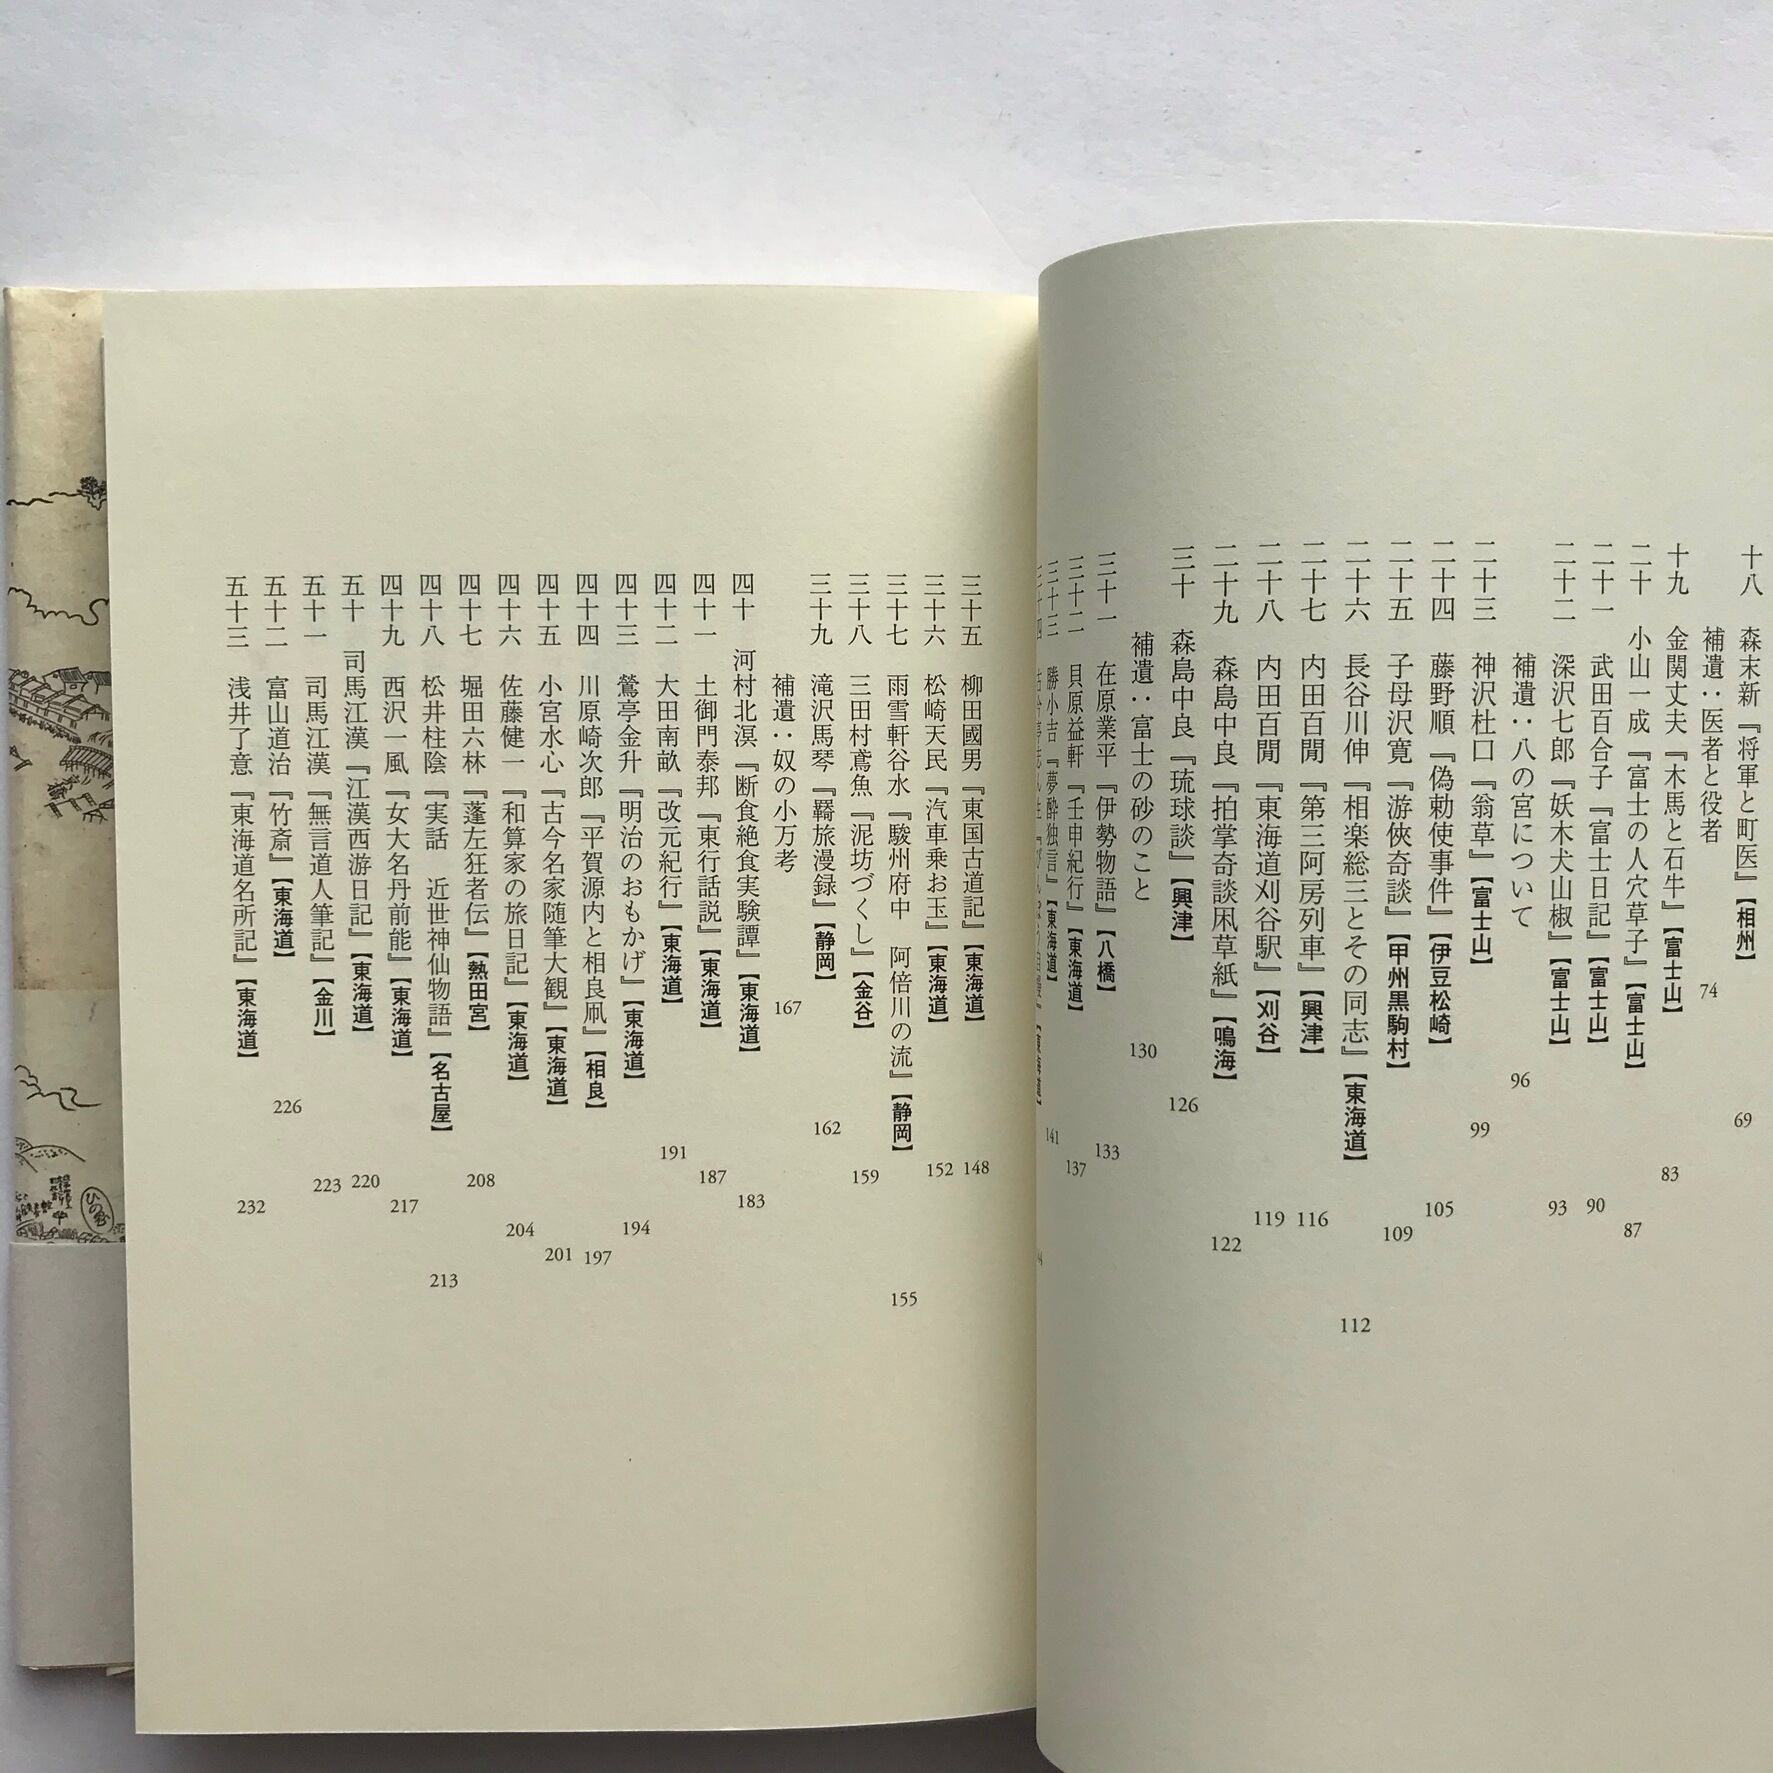 十八　森末新『将軍と町医』【相州】 69
補遺：医者と役者 74
十九　金関丈夫『木馬と石牛』【富士山】 83
二十　小山一成『富士の人穴草子』【富士山】 87
二十一　武田百合子『富士日記』【富士山】 90
二十二　深沢七郎『妖木犬山椒』【富士山】 93
補遺：八の宮について 96
二十三　神沢杜口『翁草』【富士山】 99
二十四　藤野順『偽勅使事件』【伊豆松崎】 105
二十五　子母沢寛『游侠奇談』【甲州黒駒村】 109
二十六　長谷川伸『相楽総三とその同志』【東海道】 112
二十七　内田百閒『第三阿房列車』【興津】 116
二十八　内田百閒『東海道刈谷駅』【刈谷】 119
二十九　森島中良『拍掌奇談凩草紙』【鳴海】 122
三十　森島中良『琉球談』【興津】 126
補遺：富士の砂のこと 130
三十一　在原業平『伊勢物語』【八橋】 133
三十二　貝原益軒『壬申紀行』【東海道】 137
三十三　勝小吉『夢酔独言』【東海道】 141
三十五　柳田國男『東国古道記』【東海道】 148
三十六　松崎天民『汽車乗お玉』【東海道】 152
三十七　雨雪軒谷水『駿州府中　阿倍川の流』【静岡】 155
三十八　三田村鳶魚『泥坊づくし』【金谷】 159
三十九　滝沢馬琴『羇旅漫録』【静岡】 162
補遺：奴の小万考 167
四十　河村北溟『断食絶食実験譚』【東海道】 183
四十一　土御門泰邦『東行話説』【東海道】 187
四十二　大田南畝『改元紀行』【東海道】 191
四十三　鶯亭金升『明治のおもかげ』【東海道】 194
四十四　川原崎次郎『平賀源内と相良凧』【相良】 197
四十五　小宮水心『古今名家随筆大観』【東海道】 201
四十六　佐藤健一『和算家の旅日記』【東海道】 204
四十七　堀田六林『蓬左狂者伝』【熱田宮】 208
四十八　松井桂陰『実話　近世神仙物語』【名古屋】 213
四十九　西沢一風『女大名丹前能』【東海道】 217
五十　司馬江漢『江漢西游日記』【東海道】 220
五十一　司馬江漢『無言道人筆記』【金川】 223
五十二　富山道冶『竹斎』【東海道】 226
五十三　浅井了意『東海道名所記』【東海道】 232